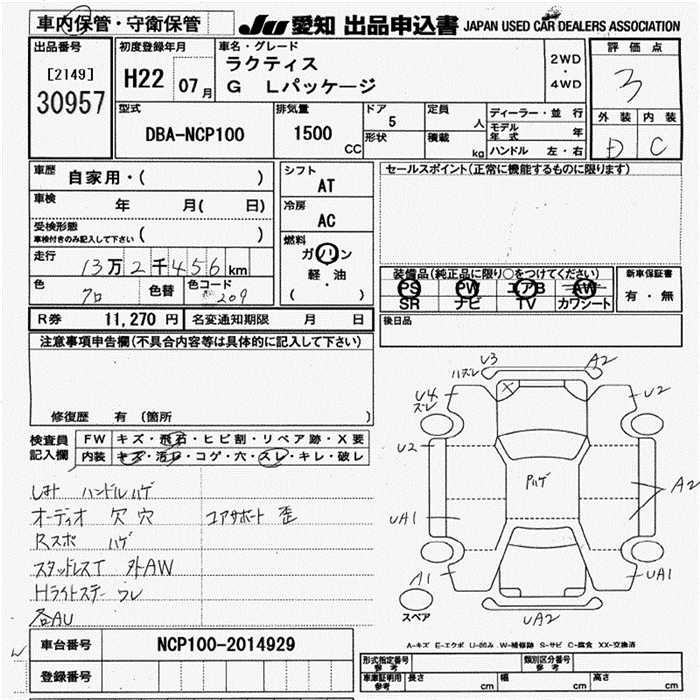 車内保管・守衛保管
JU 愛知 出品申込書 JAPAN USED CAR DEALERS ASSOCIATION
出品番号
[2149]
30957
初度登録年月
H22 07月
車名・グレード
ラクティス
G Lパッケージ
2WD
・
4WD
評価点
3
外装 内装
D C
型式
DBA-NCP100
排気量
1500
CC
ドア
5
形状
定員
人
積載
kg
ディーラー・並行
モデル年式 年
ハンドル 左・右
車歴 自家用・( )
車検 年 月( 日)
受検形態
車検付きのみ記入して下さい ( )
走行
13万2千456km
色 クロ 色替 色コード 209
シフト
AT
冷房
AC
燃料
ガソリン
・
軽・油
( )
セールスポイント(正常に機能するものに限ります)
装備品(純正品に限り○をつけてください)
PS PW エアB AW
SR ナビ TV カワシート
新車保証書
有・無
R券 11,270 円 名変通知期限 月 日
後日品
注意事項申告欄(不具合内容等は具体的に記入して下さい)
修復歴 有(箇所 )
検査員記入欄
FW キズ・飛石・ヒビ割・リペア跡・X要
内装 キズ・汚レ・コゲ・穴・スレ・キレ・破レ
ハンドルハゲ
オーディオ 欠 穴 コアサポート 歪
Rスポ ハゲ
スタッドレスT 外AW
Hライトステー ワレ
各AU
U3
ハズレ
A2
U4
ズレ
U2
U2
Pハゲ
A2
UA1
A1
UA1
UA2
スペア
A-キズ E-エクボ U-凹み W-補修跡 S-サビ C-腐食 XX-交換済
車台番号 NCP100-2014929
登録番号
形式指定番号
参考
類別区分番号
参考
車庫証明用
参考
長さ cm 幅 cm 高さ cm